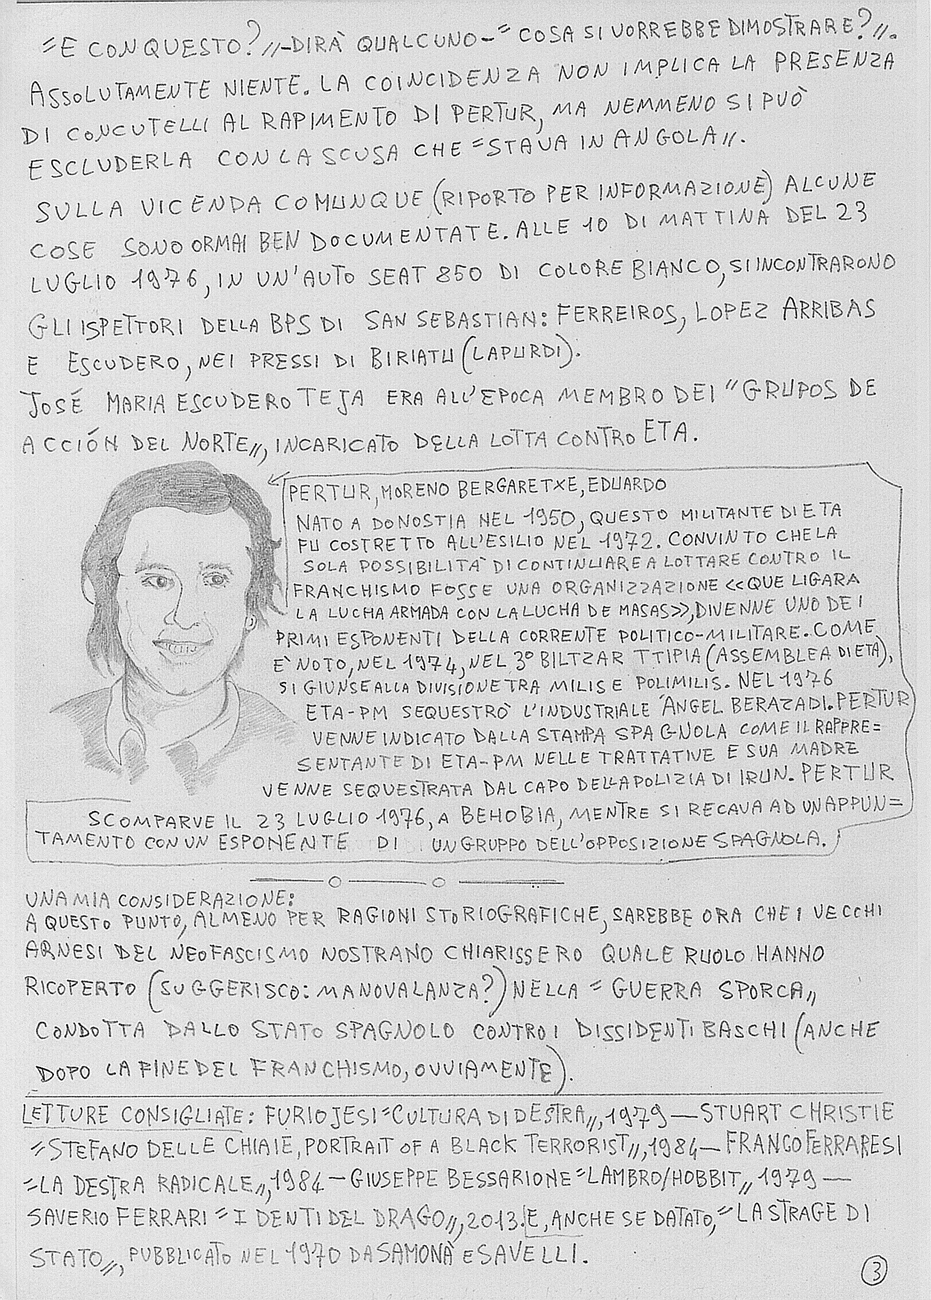 "E CON QUESTO?"-DIRÀ QUALCUNO-"COSA SI VORREBBE DIMOSTRARE?".
ASSOLUTAMENTE NIENTE. LA COINCIDENZA NON IMPLICA LA PRESENZA
DI CONCUTELLI AL RAPIMENTO DI PERTUR, MA NEMMENO SI PUÒ
ESCLUDERLA CON LA SCUSA CHE "STAVA IN ANGOLA".
SULLA VICENDA COMUNQUE (RIPORTO PER INFORMAZIONE) ALCUNE
COSE SONO ORMAI BEN DOCUMENTATE. ALLE 10 DI MATTINA DEL 23
LUGLIO 1976, IN UN'AUTO SEAT 850 DI COLORE BIANCO, SI INCONTRARONO
GLI ISPETTORI DELLA BPS DI SAN SEBASTIAN: FERREIROS, LOPEZ ARRIBAS
E ESCUDERO, NEI PRESSI DI BIRIATU (LAPURDI).
JOSÉ MARIA ESCUDERO TEJA ERA ALL'EPOCA MEMBRO DEI "GRUPOS DE
ACCIÓN DEL NORTE", INCARICATO DELLA LOTTA CONTRO ETA.
PERTUR, MORENO BERGARETXE, EDUARDO
NATO A DONOSTIA NEL 1950, QUESTO MILITANTE DI ETA
FU COSTRETTO ALL'ESILIO NEL 1972. CONVINTO CHE LA
SOLA POSSIBILITÀ DI CONTINUARE A LOTTARE CONTRO IL
FRANCHISMO FOSSE UNA ORGANIZZAZIONE <<QUE LIGARA
LA LUCHA ARMADA CON LA LUCHA DE MASAS>>, DIVENNE UNO DEI
PRIMI ESPONENTI DELLA CORRENTE POLITICO-MILITARE. COME
E' NOTO, NEL 1974, NEL 3° BILTZAR TTIPIA (ASSEMBLEA DI ETA),
SI GIUNSE ALLA DIVISIONE TRA MILIS E POLIMILIS. NEL 1976
ETA-PM SEQUESTRÒ L'INDUSTRIALE ÁNGEL BERAZADI. PERTUR
VENNE INDICATO DALLA STAMPA SPAGNOLA COME IL RAPPRE=
SENTANTE DI ETA-PM NELLE TRATTATIVE E SUA MADRE
VENNE SEQUESTRATA DAL CAPO DELLA POLIZIA DI IRUN. PERTUR
SCOMPARVE IL 23 LUGLIO 1976, A BEHOBIA, MENTRE SI RECAVA AD UN APPUN=
TAMENTO CON UN ESPONENTE DI UN GRUPPO DELL'OPPOSIZIONE SPAGNOLA.
UNA MIA CONSIDERAZIONE:
A QUESTO PUNTO, ALMENO PER RAGIONI STORIOGRAFICHE, SAREBBE ORA CHE I VECCHI
ARNESI DEL NEOFASCISMO NOSTRANO CHIARISSERO QUALE RUOLO HANNO
RICOPERTO (SUGGERISCO: MANOVALANZA?) NELLA "GUERRA SPORCA"
CONDOTTA DALLO STATO SPAGNOLO CONTRO I DISSIDENTI BASCHI (ANCHE
DOPO LA FINE DEL FRANCHISMO, OVVIAMENTE).
LETTURE CONSIGLIATE: FURIO JESI "CULTURA DI DESTRA", 1979 — STUART CHRISTIE
"STEFANO DELLE CHIAIE, PORTRAIT OF A BLACK TERRORIST", 1984 — FRANCO FERRARESI
"LA DESTRA RADICALE", 1984 — GIUSEPPE BESSARIONE "LAMBRO/HOBBIT", 1979 —
SAVERIO FERRARI "I DENTI DEL DRAGO", 2013. E, ANCHE SE DATATO, "LA STRAGE DI
STATO", PUBBLICATO NEL 1970 DA SAMONÀ E SAVELLI.
3